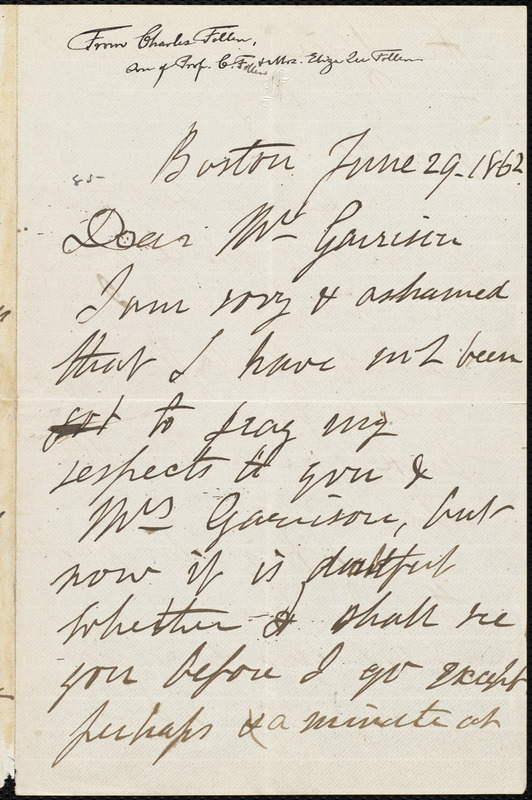 From Charles Follen,
son of Prof. C. Follen & Mrs. Eliza Lee Follen
85
Boston June 29-1862
Dear Mr Garrison
I am sory & ashamed
that I have not been
to pray my
respects to you &
Mrs Garrison, but
now it is doubtful
whether I shall see
you before I go except
perhaps a minute at